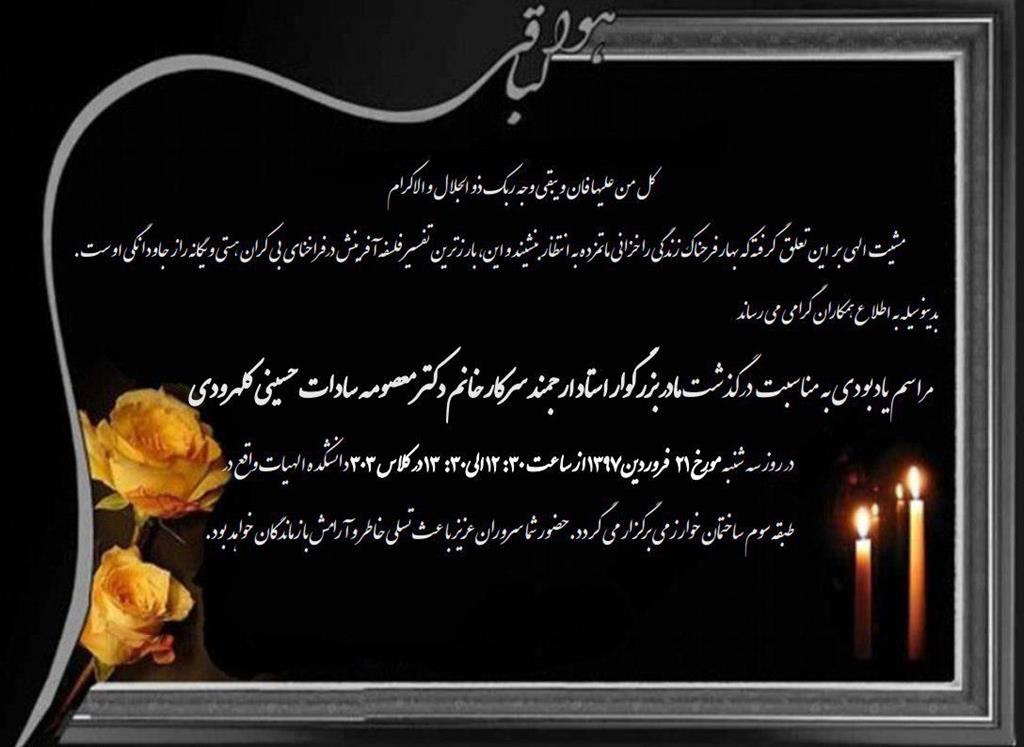 هوالباقی
کل من علیها فان و یبقی وجه ربک ذوالجلال و الاکرام
مشیت الهی بر این تعلق گرفته که بهار فرحناک زندگی را خزانی ماتمزده به انتظار بنشیند و این، بارزترین تفسیر فلسفه آفرینش در فراخنای بی کران هستی و یگانه راز جاودانگی اوست.
بدینوسیله به اطلاع همکاران گرامی می رساند
مراسم یادبودی به مناسبت درگذشت مادر بزرگوار استاد ارجمند سرکار خانم دکتر معصومه سادات حسینی کلهرودی
در روز سه شنبه مورخ ۲۱ فروردین ۱۳۹۷ از ساعت ۱۲:۳۰ الی ۱۳:۳۰ در کلاس ۳۰۳ دانشکده الهیات واقع در
طبقه سوم ساختمان خوارزمی برگزار می گردد. حضور شما سروران عزیز باعث تسلی خاطر و آرامش بازماندگان خواهد بود.